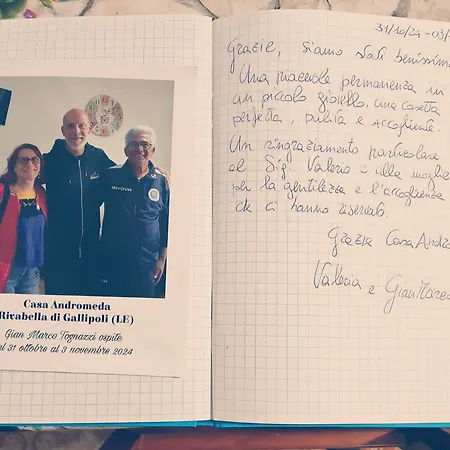 GIVOVA
Casa Andromeda
Rivabella di Gallipoli (LE)
Gian Marco Tognazzi ospite
al 31 ottobre al 3 novembre 2024
31/10/24-03/
Grazie, siamo stati benissimo
Una piacevole permanenza in
un piccolo gioiello, una casetta
perfetta, pulita e accogliente.
Un ringraziamento particolare
al Sig. Valerio e alla moglie
per la gentilezza e l'accoglienza
che ci hanno riservato.
Grazie Casa Andro
Valeria e GianMarco